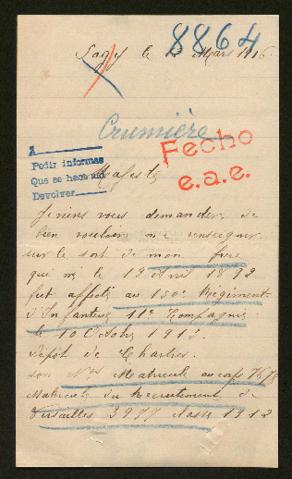 8864
Sagy le 1 Mars 1916
Crumière
Fecho
e.a.e.
A
Pedir informes
Que se hace así
Devolver
Majesté
Je viens vous demander de
bien vouloir me renseigner
sur le sort de mon frère
qui né le 19 Avril 1892
fut affecté au 150e Régiment
d'Infanterie 11e Compagnie
le 10 Octobre 1913.
Dépôt de Chartres.
son Nos Matricule au corps 7678
Matricule du Recrutement de
Versailles 3977 classe 1912